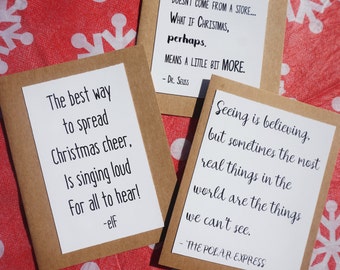 doesn't come from a store...
What if Christmas,
perhaps,
means a little bit MORE.
- Dr. Seuss
The best way
to spread
Christmas cheer,
Is singing loud
For all to hear!
-elf
Seeing is believing,
but sometimes the most
real things in the
world are the things
we can't see.
- THE POLAR EXPRESS